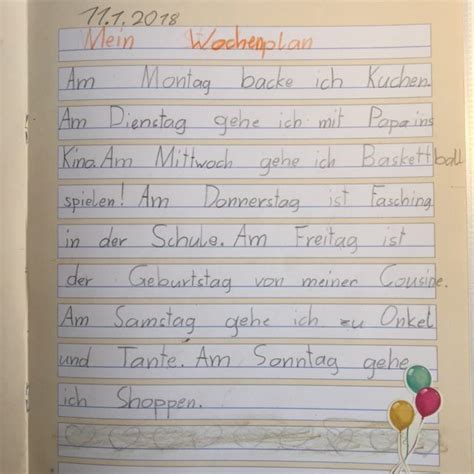 11.1.2018
Mein Wochenplan
Am Montag backe ich Kuchen.
Am Dienstag gehe ich mit Papa ins
Kino. Am Mittwoch gehe ich Baskettball
spielen! Am Donnerstag ist Fasching
in der Schule. Am Freitag ist
der Geburtstag von meiner Cousine.
Am Samstag gehe ich zu Onkel
und Tante. Am Sonntag gehe
ich Shoppen.